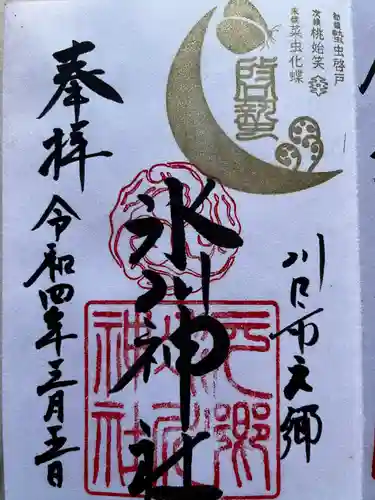 初候 蟄虫啓戸
次候 桃始笑
末候 菜虫化蝶
啓蟄
川口市元郷
氷川神社
元郷氷川神社
奉拝
令和四年三月五日